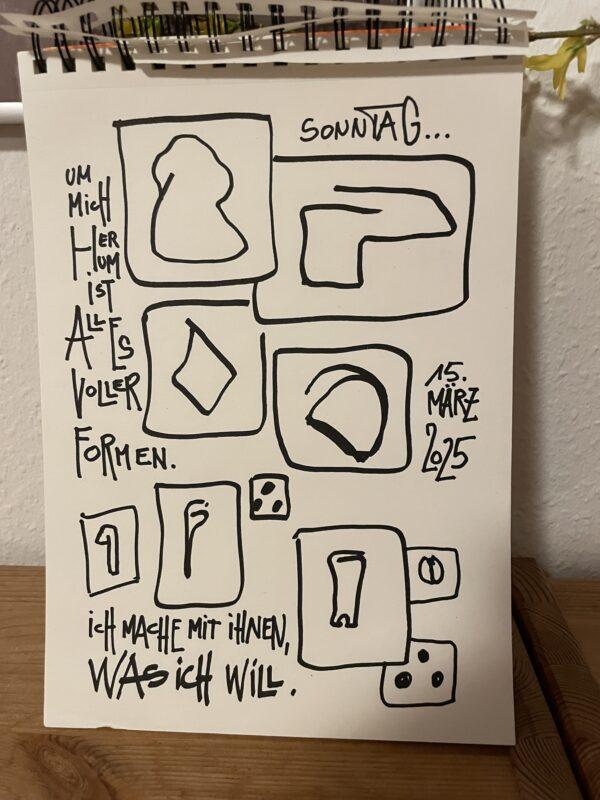 SONNTAG...
UM
MICH
HER
UM
IST
ALLES
VOLLER
FORMEN.
15.
MÄRZ
2025
ICH MACHE MIT IHNEN,
WAS ICH WILL.